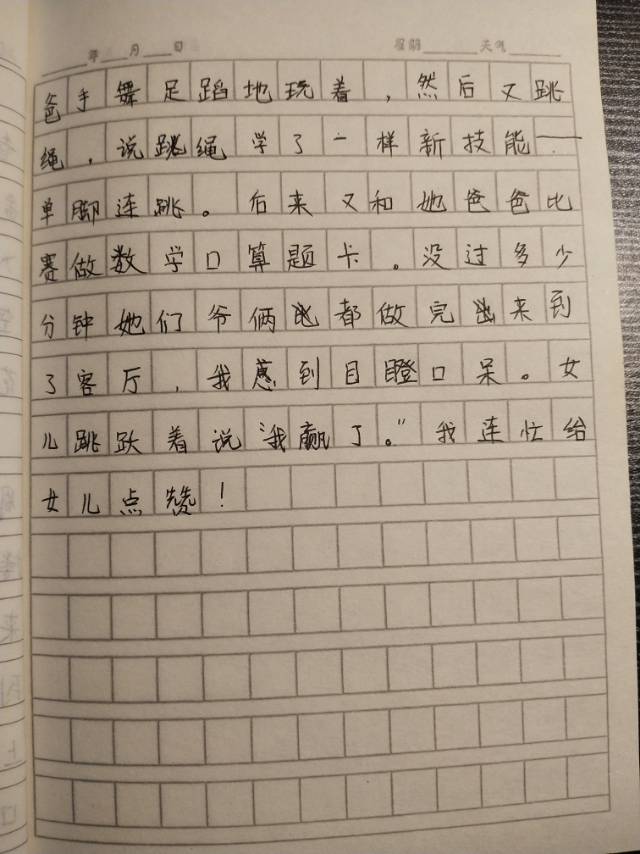 年 月 日 星期 天气
爸手舞足蹈地玩着，然后又跳
绳，说跳绳学了一样新技能——
单脚连跳。后来又和她爸爸比
赛做数学口算题卡。没过多少
分钟她们爷俩都做完出来到
了客厅，我感到目瞪口呆。女
儿跳跃着说"我赢了。"我连忙给
女儿点赞！